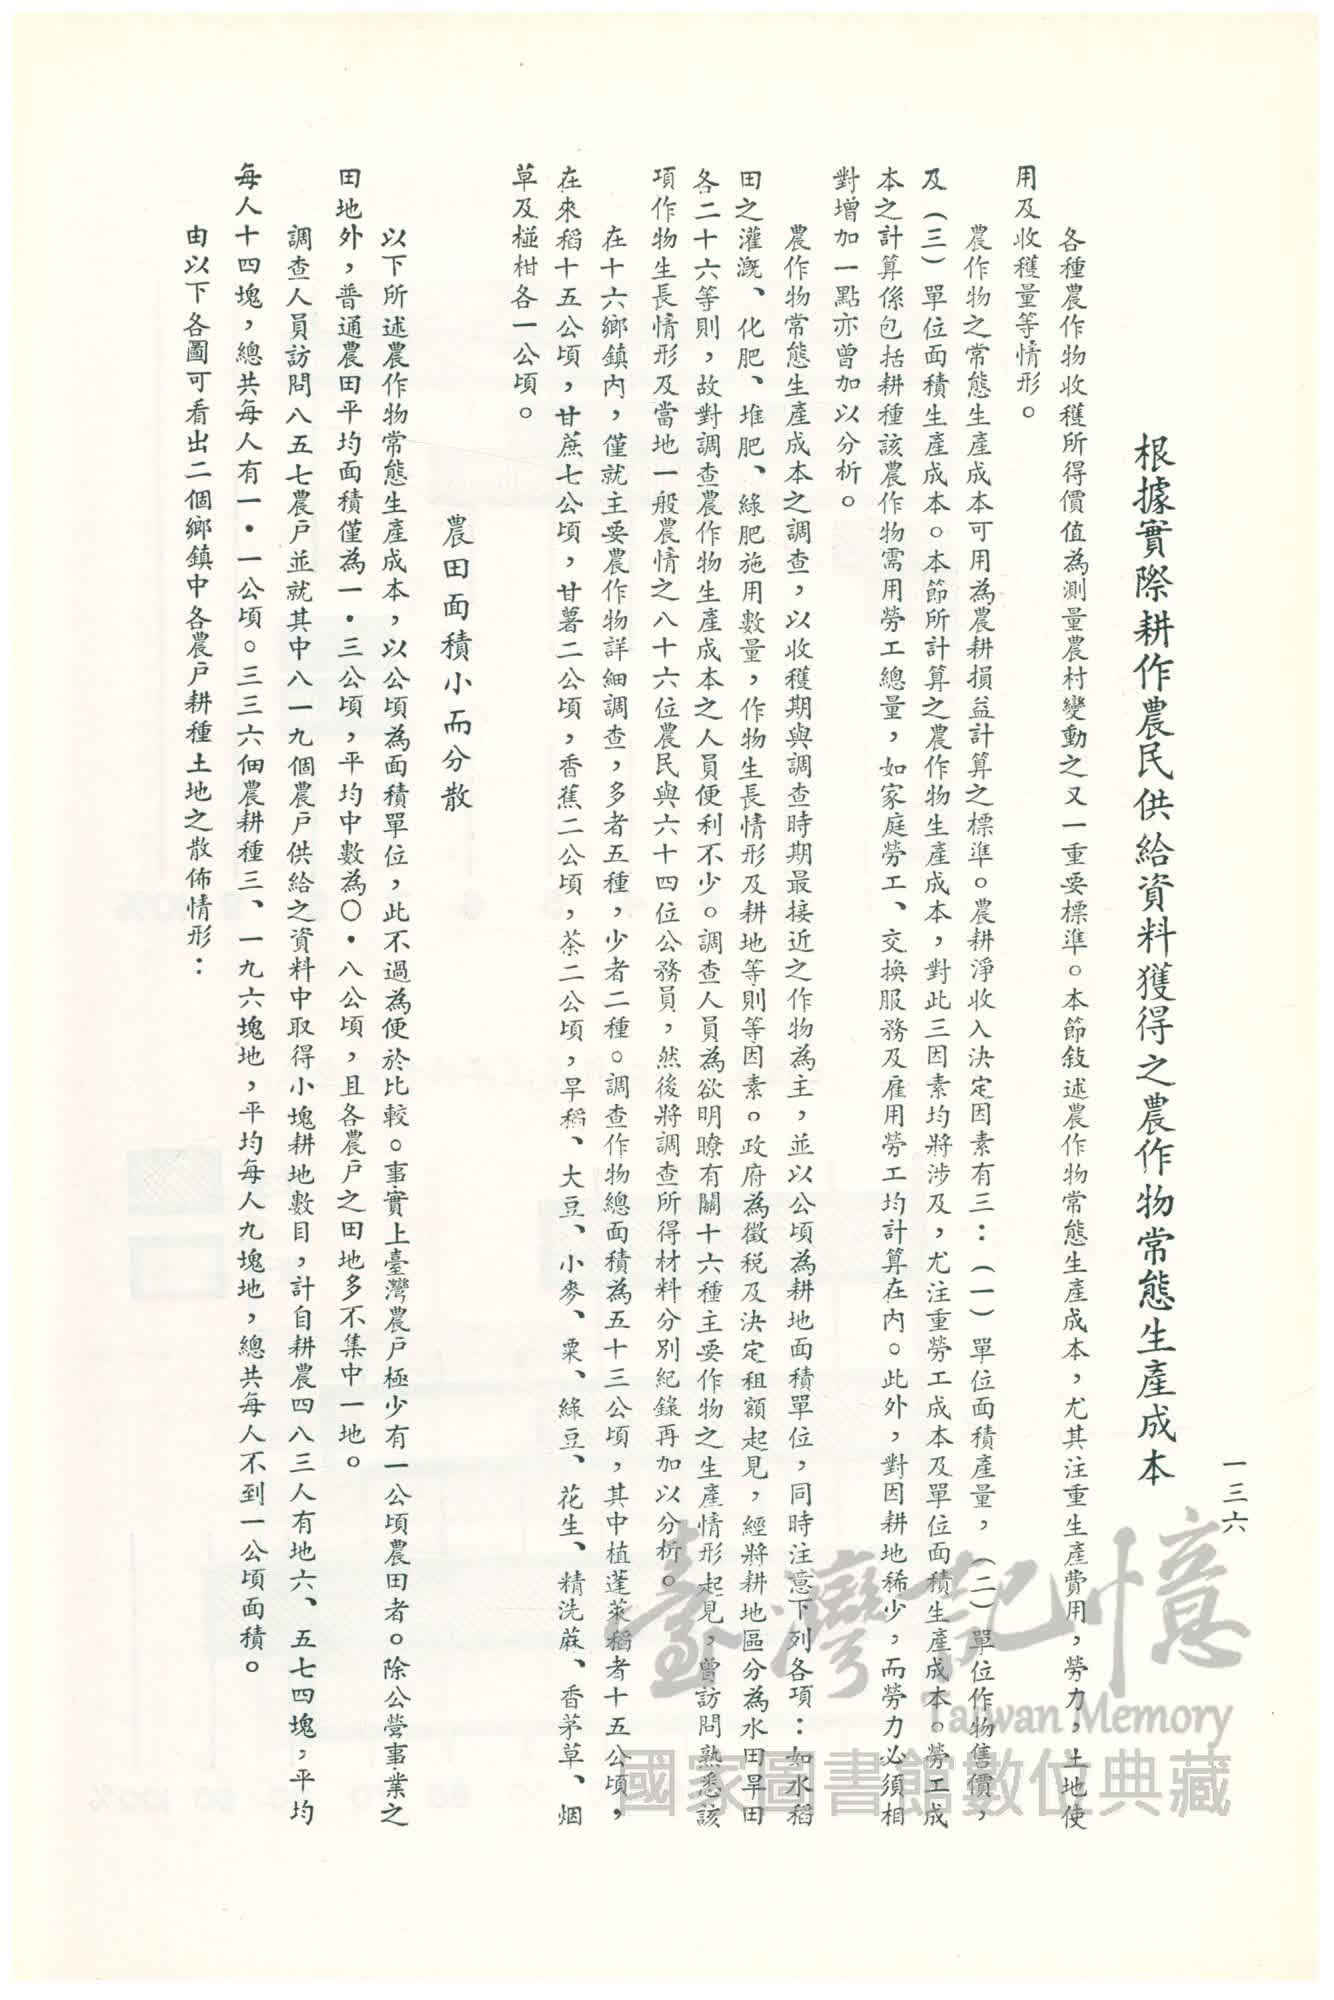 一三六
根據實際耕作農民供給資料獲得之農作物常態生產成本
各種農作物收穫所得價值為測量農村變動之又一重要標準。本節敍述農作物常態生產成本，尤其注重生產費用，勞力，土地使
用及收穫量等情形。
農作物之常態生產成本可用為農耕損益計算之標準。農耕淨收入決定因素有三：（一）單位面積產量，（二）單位作物售價，
及（三）單位面積生產成本。本節所計算之農作物生產成本，對此三因素均將涉及，尤注重勞工成本及單位面積生產成本。勞工成
本之計算係包括耕種該農作物需用勞工總量，如家庭勞工、交換服務及雇用勞工均計算在內。此外，對因耕地稀少，而勞力必須相
對增加一點亦曾加以分析。
農作物常態生產成本之調查，以收穫期與調查時期最接近之作物為主，並以公頃為耕地面積單位，同時注意下列各項：如水稻
田之灌溉、化肥、堆肥、綠肥施用數量，作物生長情形及耕地等則等因素。政府為徵税及決定租額起見，經將耕地區分為水田旱田
各二十六等則，故對調查農作物生產成本之人員便利不少。調查人員為欲明瞭有關十六種主要作物之生產情形起見，曾訪問熟悉該
項作物生長情形及當地一般農情之八十六位農民與六十四位公務員，然後將調查所得材料分別紀錄再加以分析。
在十六鄉鎮內，僅就主要農作物詳細調查，多者五種，少者二種。調查作物總面積為五十三公頃，其中植蓬萊稻者十五公頃，
在來稻十五公頃，甘蔗七公頃，甘薯二公頃，香蕉二公頃，茶二公頃，旱稻、大豆、小麥、粟、綠豆、花生、精洗蔴、香茅草、烟
草及椪柑各一公頃。
農田面積小而分散
以下所述農作物常態生產成本，以公頃為面積單位，此不過為便於比較。事實上臺灣農戶極少有一公頃農田者。除公營事業之
田地外，普通農田平均面積僅為一．三公頃，平均中數為〇．八公頃，且各農戶之田地多不集中一地。
調查人員訪問八五七農戶並就其中八一九個農戶供給之資料中取得小塊耕地數目，計自耕農四八三人有地六、五七四塊，平均
每人十四塊，總共每人有一．一公頃。三三六佃農耕種三、一九六塊地，平均每人九塊地，總共每人不到一公頃面積。
由以下各圖可看出二個鄉鎮中各農戶耕種土地之散佈情形：
臺灣記憶
Taiwan Memory
國家圖書館數位典藏